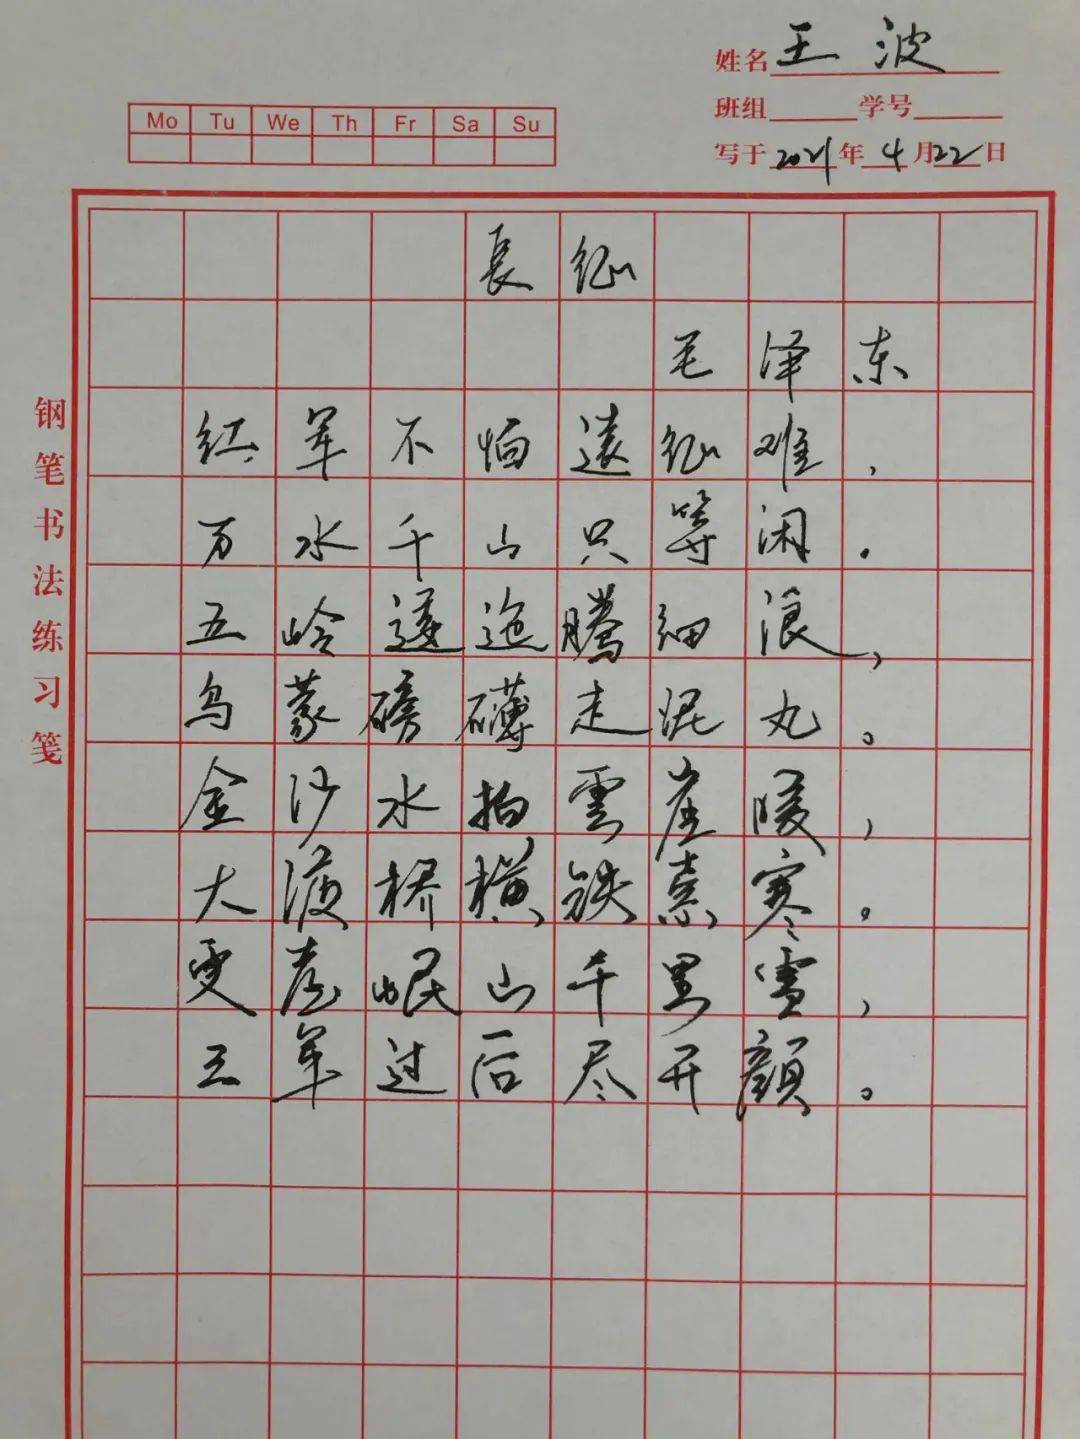 姓名 王波
Mo Tu We Th Fr Sa Su
班组 学号
写于 2021 年 4 月 22 日
钢笔书法练习笺
長征
毛泽东
红军不怕遠征难，
万水千山只等闲．
五岭逶迤腾细浪，
乌蒙磅礴走泥丸。
金沙水拍雲崖暖，
大渡桥横铁索寒。
更喜岷山千里雪，
三军过后尽开颜。